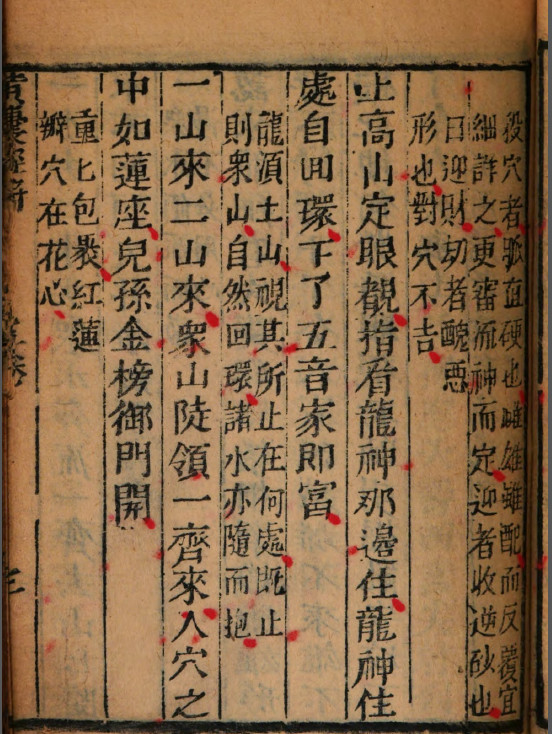 投穴者歇直硬也雌雄雖配而反覆宜
細詳之更審流神而定迎者收逆砂也
曰迎財刼者醜惡
形也對穴不吉
上高山定眼覩指看龍神那邊住龍神住
處自田環下了五音家即富
龍湏土山視其所止在何處既止
則衆山自然回環諸水亦隨而抱
一山來二山來衆山陡領一齊來入穴之
中如蓮座兒孫金榜御門開
重匕包褁紅蓮
瓣穴在花心
三